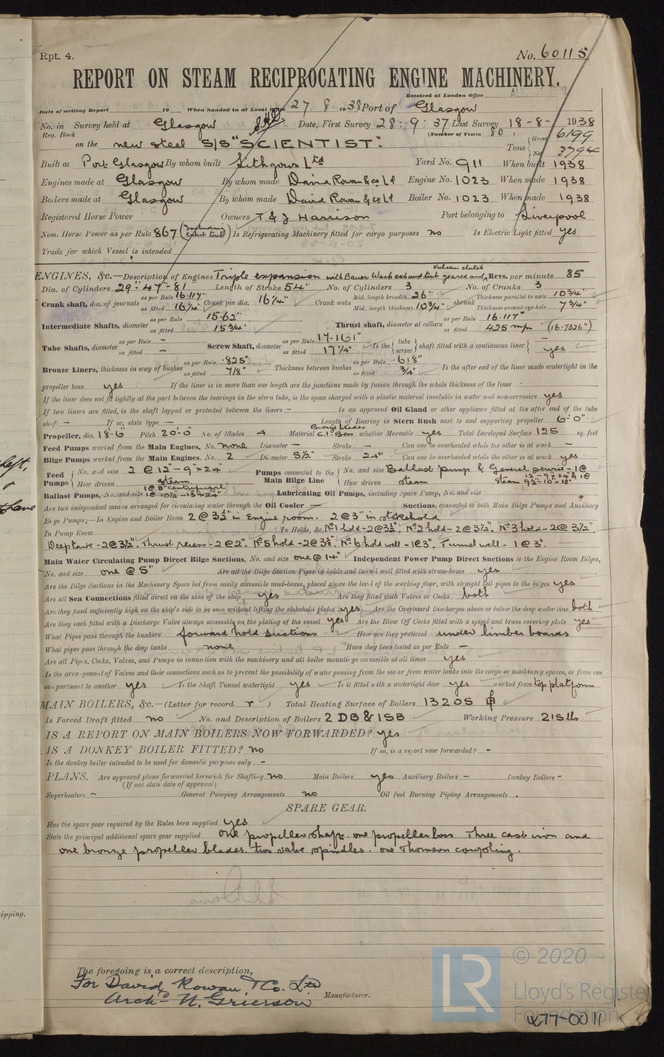 Rpt. 4. No. 60115
REPORT ON STEAM RECIPROCATING ENGINE MACHINERY.
Received at London Office
Date of writing Report 19 When handed in at Local Office 27 - 8 - 1938 Port of Glasgow
No. in Survey held at Glasgow Date, First Survey 28 : 9 : 37 Last Survey 18 - 8 - 1938
Reg. Book (Number of Visits 80)
on the new steel S/S "SCIENTIST". Tons Gross 6199 Net 3794
Built at Port Glasgow By whom built Lithgows Ltd Yard No. 911 When built 1938
Engines made at Glasgow By whom made David Rowan & Co Ld Engine No. 1023 When made 1938
Boilers made at Glasgow By whom made David Rowan & Co Ld Boiler No. 1023 When made 1938
Registered Horse Power Owners T & J Harrison Port belonging to Liverpool
Nom. Horse Power as per Rule 867 Is Refrigerating Machinery fitted for cargo purposes no Is Electric Light fitted yes
Trade for which Vessel is intended
ENGINES, &c.—Description of Engines Triple expansion with Bauer Wach exhaust turb geared and Vulcan clutch Revs. per minute 85
Dia. of Cylinders 29" - 47" - 81" Length of Stroke 54" No. of Cylinders 3 No. of Cranks 3
Crank shaft, dia. of journals as per Rule 16.117" as fitted 16¼" Crank pin dia. 16¼" Crank webs Mid. length breadth 26" Mid. length thickness 10¾" shrunk Thickness parallel to axis 10¾" Thickness around eye-hole 7¾"
Intermediate Shafts, diameter as per Rule 15.62" as fitted 15¾" Thrust shaft, diameter at collars as per Rule 16.117" as fitted 425 mm (16.7326")
Tube Shafts, diameter as per Rule - as fitted - Screw Shaft, diameter as per Rule 17.161" as fitted 17¼" Is the tube screw shaft fitted with a continuous liner - yes
Bronze Liners, thickness in way of bushes as per Rule .825" as fitted 7/8" Thickness between bushes as per Rule .618" as fitted ¾" Is the after end of the liner made watertight in the
propeller boss yes If the liner is in more than one length are the junctions made by fusion through the whole thickness of the liner -
If the liner does not fit tightly at the part between the bearings in the stern tube, is the space charged with a plastic material insoluble in water and non-corrosive yes
If two liners are fitted, is the shaft lapped or protected between the liners - Is an approved Oil Gland or other appliance fitted at the after end of the tube
shaft - If so, state type - Length of Bearing in Stern Bush next to and supporting propeller 6'-0"
Propeller, dia. 18-6 Pitch 20'-0" No. of Blades 4 Material whether Moveable yes Total Developed Surface 125 sq. feet
Feed Pumps worked from the Main Engines, No. none Diameter - Stroke - Can one be overhauled while the other is at work -
Bilge Pumps worked from the Main Engines, No. 2 Diameter 5½" Stroke 24" Can one be overhauled while the other is at work yes
Feed Pumps No. and size 2 @ 12" - 9" x 24" How driven steam Pumps connected to the Main Bilge Line No. and size Ballast pump & General service - 1 @ How driven steam
Ballast Pumps, No. and size Lubricating Oil Pumps, including Spare Pump, No. and size
Are two independent means arranged for circulating water through the Oil Cooler Suctions, connected to both Main Bilge Pumps and Auxiliary
Bilge Pumps;—In Engine and Boiler Room 2 @ 3½" in Engine room. 2 @ 3" in stokehold
In Pump Room In Holds, &c. No 1 hold - 2 @ 3½", No 2 hold - 2 @ 3½", No 3 hold - 2 @ 3½"
Deep tank - 2 @ 3½", Thrust recess - 2 @ 2", No 5 hold - 2 @ 3½", No 6 hold well - 1 @ 3", Tunnel well - 1 @ 3".
Main Water Circulating Pump Direct Bilge Suctions, No. and size one @ 14" Independent Power Pump Direct Suctions to the Engine Room Bilges,
No. and size one @ 5" Are all the Bilge Suction Pipes in holds and tunnel well fitted with strum-boxes yes
Are the Bilge Suctions in the Machinery Space led from easily accessible mud-boxes, placed above the level of the working floor, with straight tail pipes to the bilges yes
Are all Sea Connections fitted direct on the skin of the ship yes Are they fitted with Valves or Cocks both
Are they fixed sufficiently high on the ship's side to be seen without lifting the stokehold plates yes Are the Overboard Discharges above or below the deep water line both
Are they each fitted with a Discharge Valve always accessible on the plating of the vessel yes Are the Blow Off Cocks fitted with a spigot and brass covering plate yes
What Pipes pass through the bunkers forward hold suctions How are they protected under limber boards
What pipes pass through the deep tanks none Have they been tested as per Rule -
Are all Pipes, Cocks, Valves, and Pumps in connection with the machinery and all boiler mountings accessible at all times yes
Is the arrangement of Valves and their connections such as to prevent the possibility of water passing from the sea or from water tanks into the cargo or machinery spaces, or from one
compartment to another yes Is the Shaft Tunnel watertight yes Is it fitted with a watertight door yes worked from top platform
MAIN BOILERS, &c.—(Letter for record r) Total Heating Surface of Boilers 13205
Is Forced Draft fitted no No. and Description of Boilers 2 DB & 1 SB Working Pressure 215 lbs
IS A REPORT ON MAIN BOILERS NOW FORWARDED? yes
IS A DONKEY BOILER FITTED? no If so, is a report now forwarded? -
Is the donkey boiler intended to be used for domestic purposes only -
PLANS. Are approved plans forwarded herewith for Shafting no Main Boilers yes Auxiliary Boilers - Donkey Boilers -
(If not state date of approval)
Superheaters - General Pumping Arrangements no Oil fuel Burning Piping Arrangements -
SPARE GEAR.
Has the spare gear required by the Rules been supplied yes
State the principal additional spare gear supplied one propeller shaft. one propeller boss Three cast iron and
one bronze propeller blades. two valve spindles. one Thomson coupling.
The foregoing is a correct description,
For David Rowan & Co. Ltd
Archd. N. Grierson Manufacturer.
© 2020
LR Lloyd's Register
Foundation